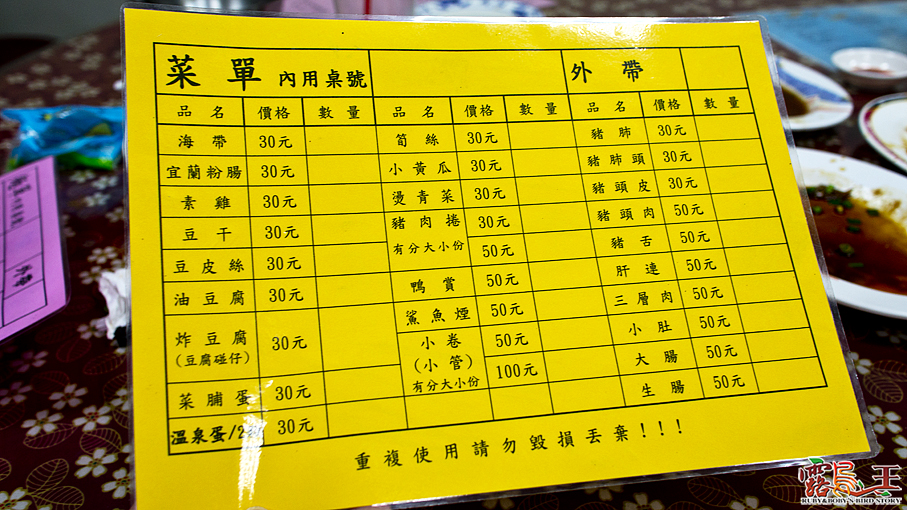 菜單 內用桌號 外帶
品名 價格 數量 品名 價格 數量 品名 價格 數量
海帶 30元
宜蘭粉腸 30元
素雞 30元
豆干 30元
豆皮絲 30元
油豆腐 30元
炸豆腐 30元
(豆腐碰仔)
菜脯蛋 30元
溫泉蛋/2 30元
筍絲 30元
小黃瓜 30元
燙青菜 30元
豬肉捲 30元
有分大小份 50元
鴨賞 50元
鯊魚煙 50元
小卷 50元
(小管) 100元
有分大小份
豬肺 30元
豬肺頭 30元
豬頭皮 30元
豬頭肉 50元
豬舌 50元
肝連 50元
三層肉 50元
小肚 50元
大腸 50元
生腸 50元
重複使用請勿毀損丟棄!!!
露馬王
RUBY&BOBY'S BIRD STORY